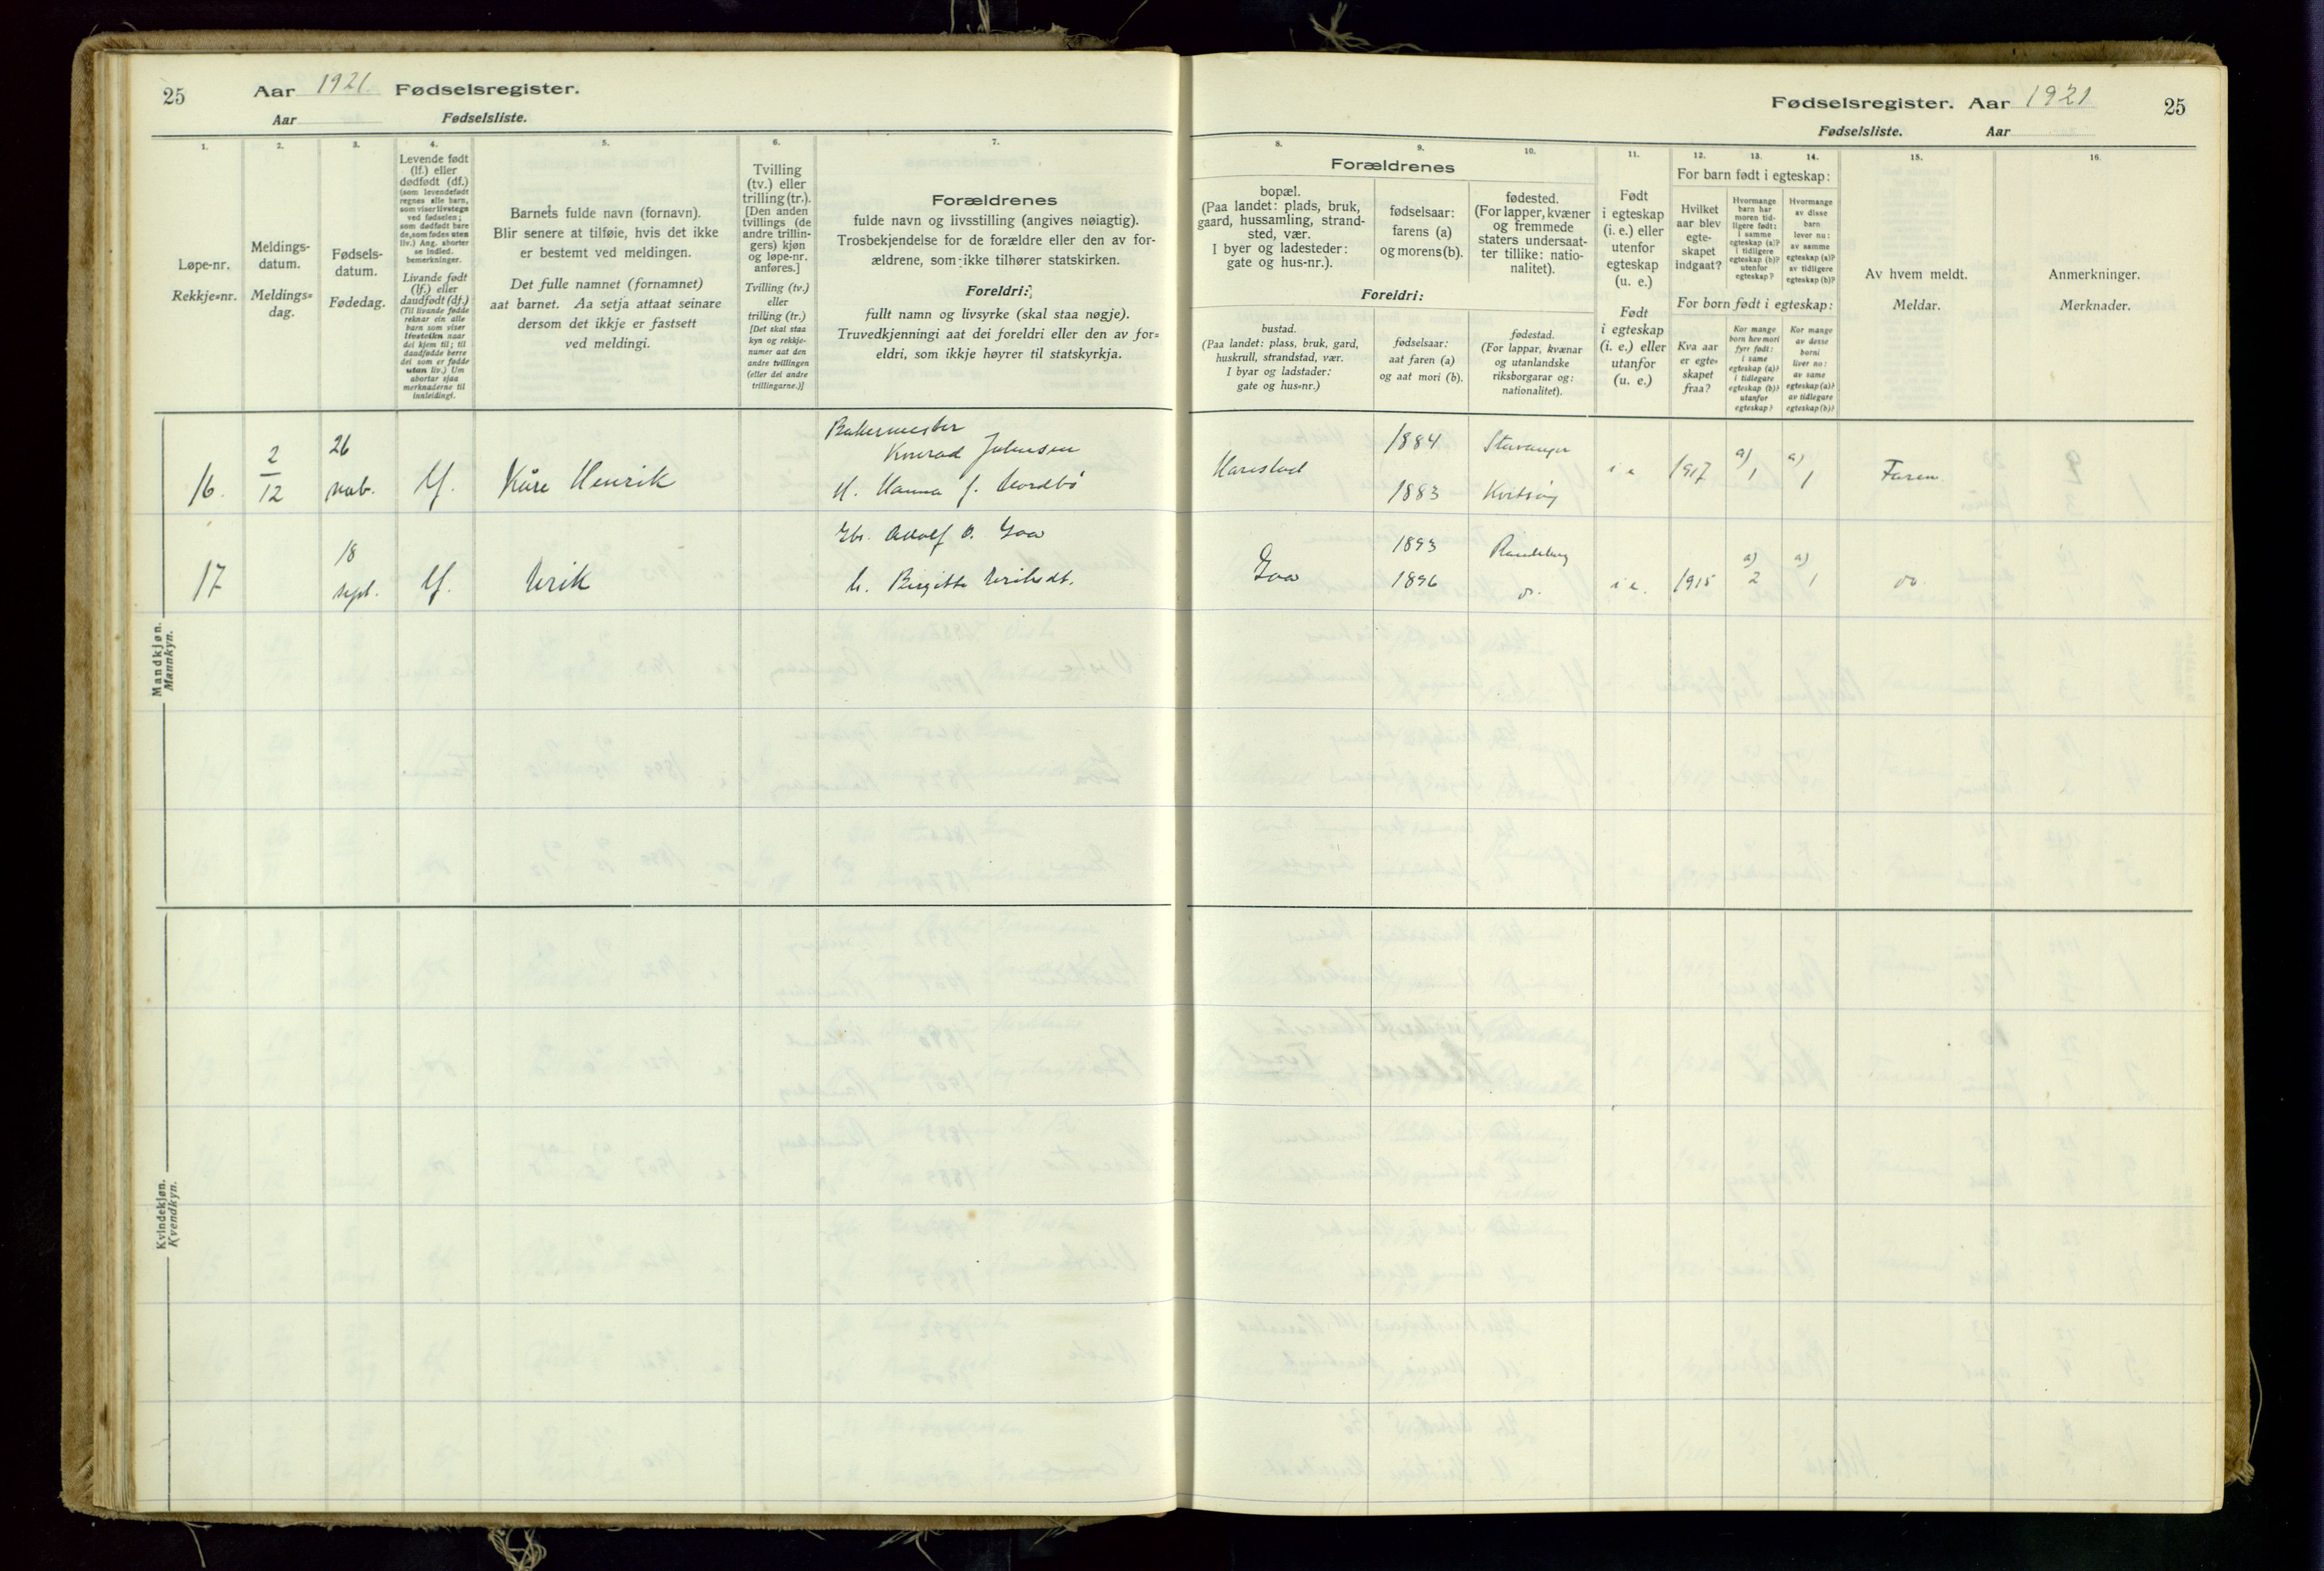 25 Aar 1921. Fødselsregister.
Aar Fødselsliste.
1. 2. 3. 4. 5. 6. 7.
Løpe-nr.
Rekkje=nr.
Meldings-
datum.
Meldings=
dag.
Fødsels-
datum.
Fødedag.
Levende født
(lf.) eller
dødfødt (df.)
(som levendefødt
regnes alle barn,
som viser livstegn
ved fødselen;
som dødfødt bare
de, som fødes uten
liv.) Ang. aborter
se indled.
bemerkninger.
Livande født
(lf.) eller
daudfødt (df.)
(Til livande fødde
reknar ein alle
barn som viser
livsteikn naar
dei kjem til; til
daudfødde berre
dei som er fødde
utan liv.) Um
abortar sjaa
merknaderne til
innleidingi.
Barnets fulde navn (fornavn).
Blir senere at tilføie, hvis det ikke
er bestemt ved meldingen.
Det fulle namnet (fornamnet)
aat barnet. Aa setja attaat seinare
dersom det ikkje er fastsett
ved meldingi.
Tvilling
(tv.) eller
trilling (tr.).
[Den anden
tvillings (de
andre trillin-
gers) kjøn
og løpe-nr.
anføres.]
Tvilling (tv.)
eller
trilling (tr.)
[Det skal staa
kyn og rekkje-
numer aat den
andre tvillingen
(eller dei andre
trillingarne.)]
Forældrenes
fulde navn og livsstilling (angives nøiagtig).
Trosbekjendelse for de forældre eller den av for-
ældrene, som ikke tilhører statskirken.
Foreldri:
fullt namn og livsyrke (skal staa nøgje).
Truvedkjenningi aat dei foreldri eller den av for=
eldri, som ikkje høyrer til statskyrkja.
Mandkjøn.
Mannkyn.
16. 2/12 26 nov. lf. Kåre Henrik
Bakermester
Konrad Johnsen
H. Hanna f. Nordbø
17 18 sept. lf. Erik
Gbr. Adolf O. Goa
h. Birgitte Eriksdt.
Kvindekjøn.
Kvendkyn.
Fødselsregister. Aar 1921 25
Fødselsliste. Aar
8. 9. 10. 11. 12. 13. 14. 15. 16.
Forældrenes
bopæl.
(Paa landet: plads, bruk,
gaard, hussamling, strand-
sted, vær.
I byer og ladesteder:
gate og hus-nr.).
fødselsaar:
farens (a)
og morens (b).
fødested.
(For lapper, kvæner
og fremmede
staters undersaat-
ter tillike: natio-
nalitet).
Foreldri:
bustad.
(Paa landet: plass, bruk, gard,
huskrull, strandstad, vær.
I byar og ladstader:
gate og hus=nr.)
fødselsaar:
aat faren (a)
og aat mori (b).
fødestad.
(For lappar, kvænar
og utanlandske
riksborgarar og:
nationalitet).
Født
i egteskap
(i. e.) eller
utenfor
egteskap
(u. e.)
Født
i egteskap
(i. e.) eller
utanfor
(u. e.)
For barn født i egteskap:
Hvilket
aar blev
egte-
skapet
indgaat?
Hvormange
barn har
moren tid-
ligere født:
i samme
egteskap (a)?
i tidligere
egteskap (b)?
utenfor
egteskap?
Hvormange
av disse
barn
lever nu:
av samme
egteskap (a)?
av tidligere
egteskap (b)?
For born født i egteskap:
Kva aar
er egte=
skapet
fraa?
Kor mange
born hev mori
fyrr født:
i same
egteskap (a)?
i tidlegare
egteskap (b)?
utanfor
egteskap?
Kor mange
av desse
borni
liver no:
av same
egteskap (a)?
av tidlegare
egteskap (b)?
Av hvem meldt.
Meldar.
Anmerkninger.
Merknader.
Harestad 1884 Stavanger
1883 Kvitsøy
i e 1917 a) 1 a) 1 Faren
Goa 1893 Randeberg
1896 do.
i e. 1915 a) 2 a) 1 do